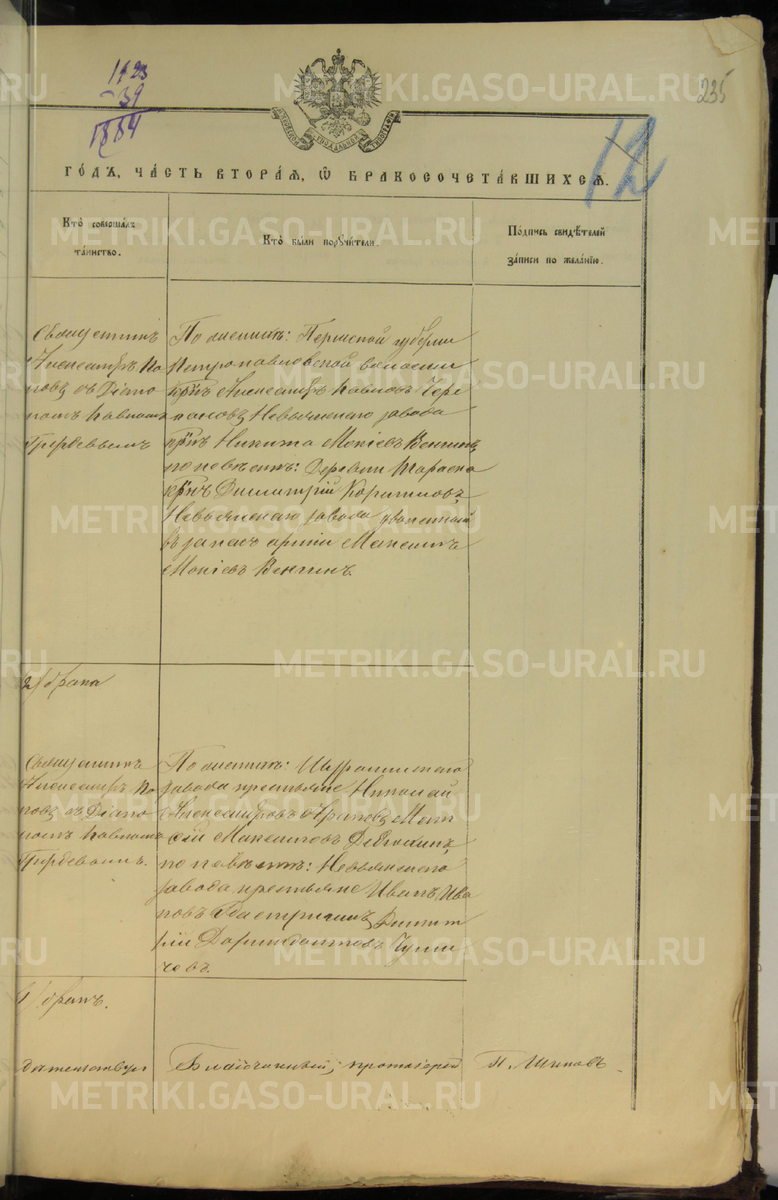 1923
- 39
1884
235
12
ГОДЪ, ЧАСТЬ ВТОРАЯ, Ѡ БРАКОСОЧЕТАВШИХСЯ.
Кто совершалъ
таинство.
Кто были поручители.
Подпись свидѣтелей
записи по желанію.
Священникъ
Александръ По
повъ съ Діако
номъ Павломъ
По женихѣ: Пермской губерніи
Петропавловской волости
кр̃нъ Александръ Павловъ Чере
пановъ, Невьянскаго завода
кр̃нъ Никита Мокіевъ Венгинъ,
по невѣстѣ: Деревни
кр̃нъ Димитрій
Невьянскаго завода уволенный
въ запасъ арміи Максимъ
Мокіевъ Венгинъ.
брака
Священникъ
Александръ По
повъ съ Діако
номъ Павломъ
По женихѣ:
завода крестьяне Николай
Александровъ Мат
ѳій Максимовъ
по невѣстѣ: Невьянскаго
завода крестьяне Иванъ Ива
новъ Димит
рій
чевъ.
бракъ.
дѣтельствую
Благочинный, протоіерей
П. Шиповъ
METRIKI.GASO-URAL.RU